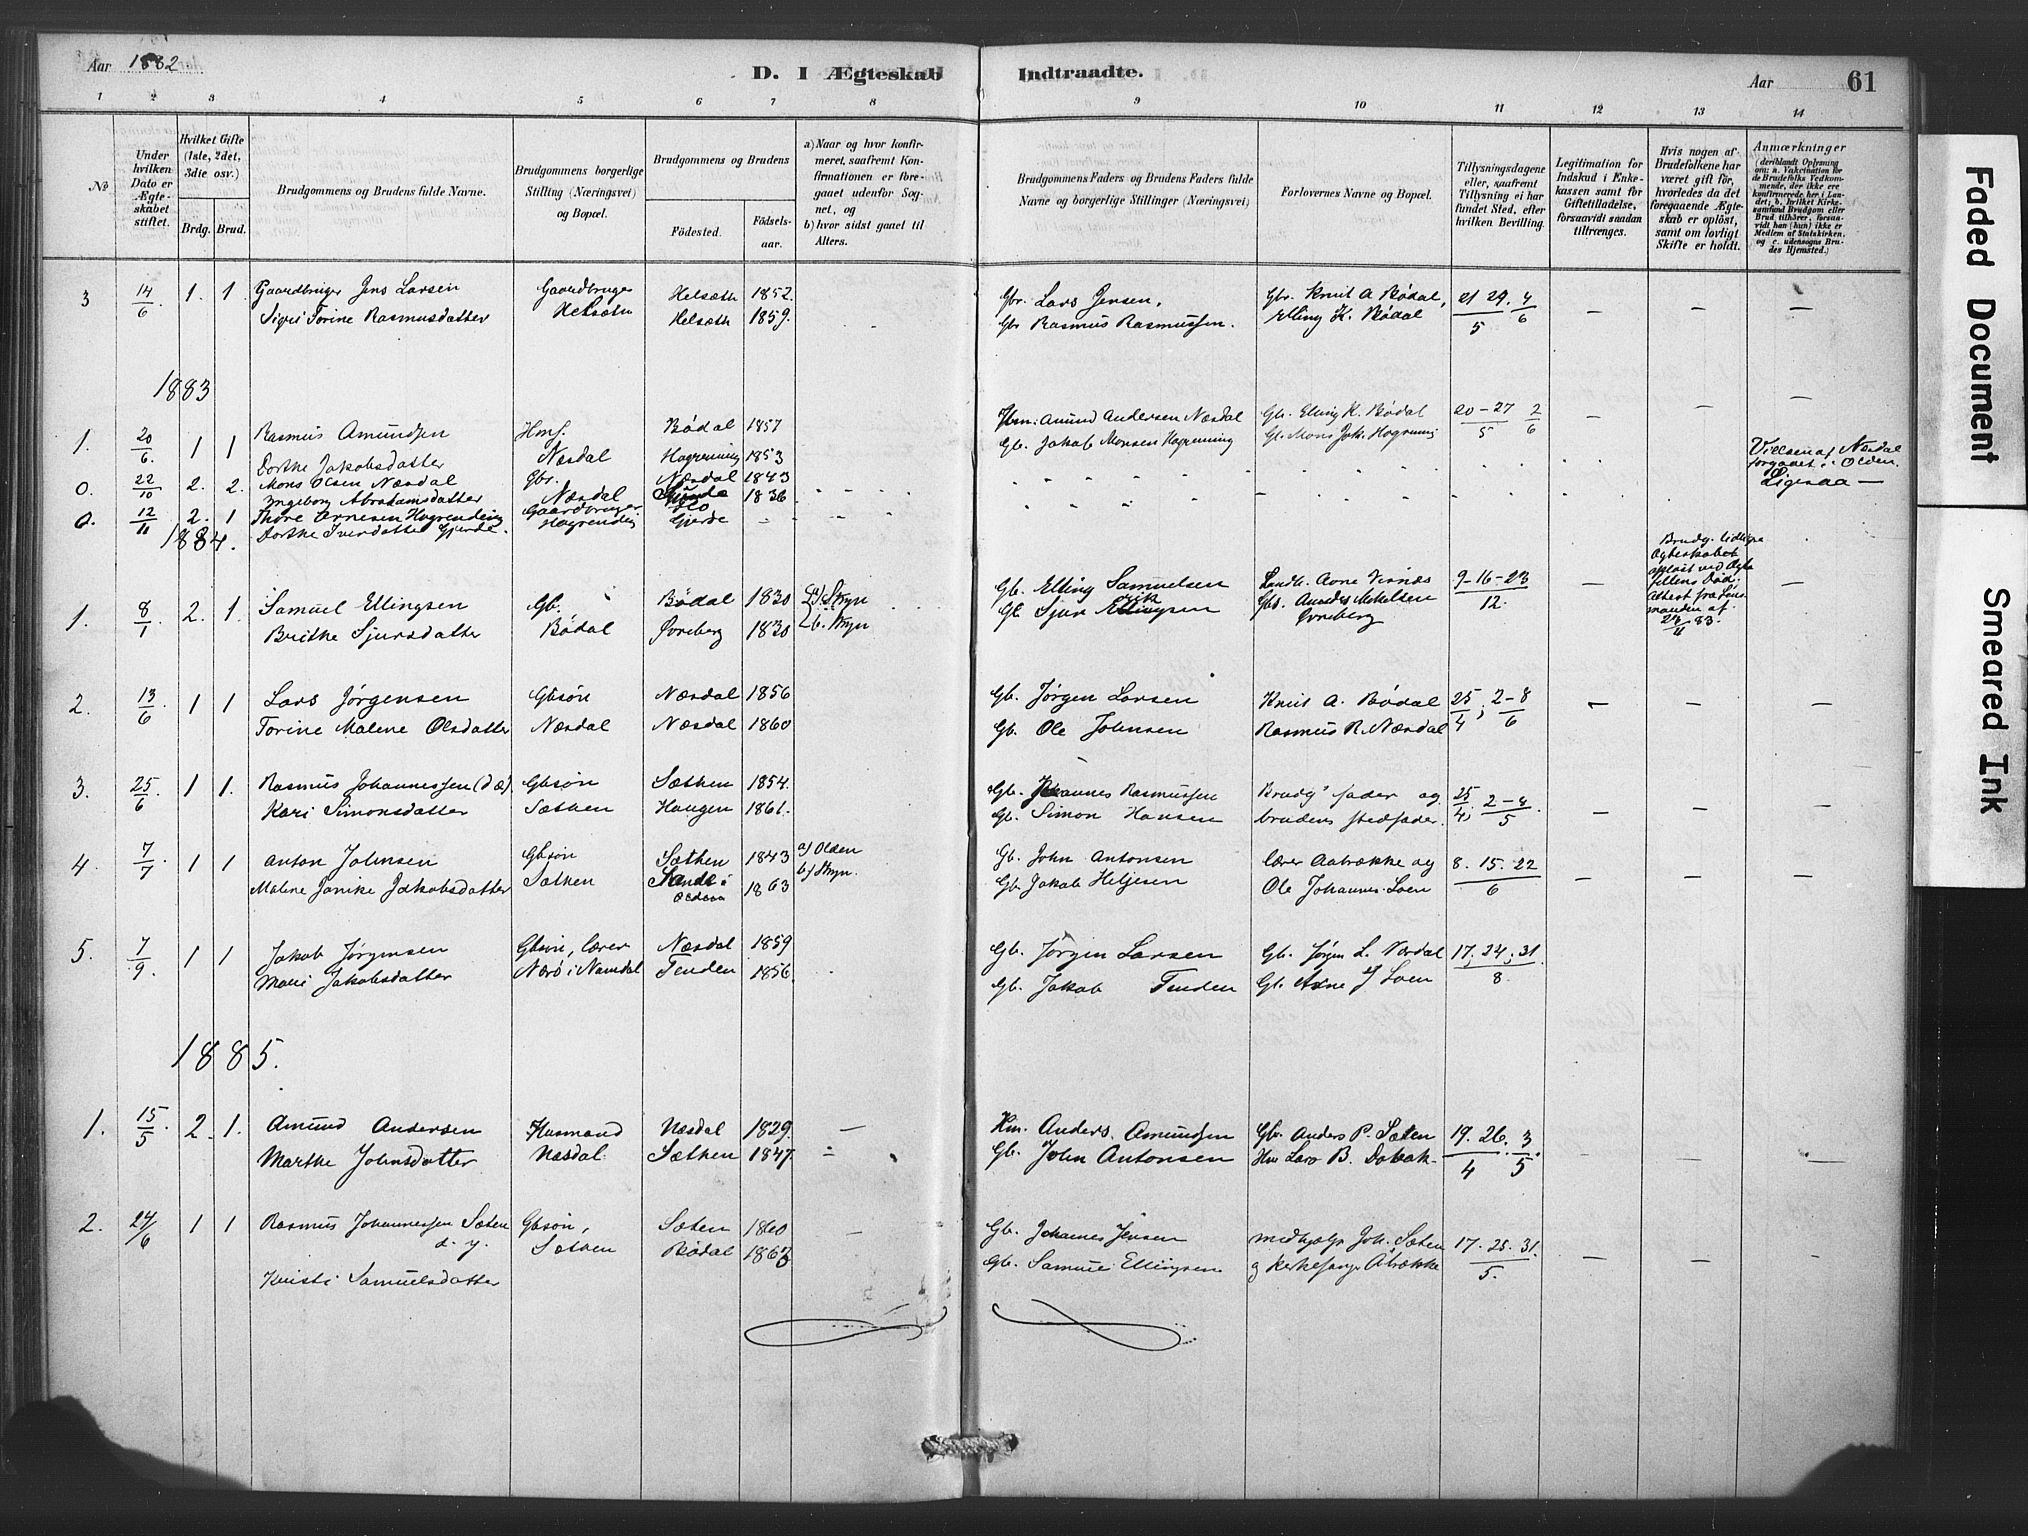 Aar 1882
D. I Ægteskab Indtraadte.
Aar 61
1 2 3 4 5 6 7 8 9 10 11 12 13 14
No
Under hvilken Dato er Ægteskabet stiftet.
Hvilket Gifte (1ste, 2det, 3die osv.)
Brdg. Brud.
Brudgommens og Brudens fulde Navne.
Brudgommens borgerlige Stilling (Næringsvei) og Bopæl.
Brudgommens og Brudens
Födested. Födsels-aar.
a) Naar og hvor konfirmeret, saafremt Konfirmationen er foregaaet udenfor Sognet, og
b) hvor sidst gaaet til Alters.
Brudgommens Faders og Brudens Faders fulde Navne og borgerlige Stillinger (Næringsvei)
Forlovernes Navne og Bopæl.
Tillysningsdagene eller, saafremt Tillysning ei har fundet Sted, efter hvilken Bevilling.
Legitimation for Indskud i Enkekassen samt for Giftetilladelse, forsaavidt saadan tiltrænges.
Hvis nogen af Brudefolkene har været gift för, hvorledes da det foregaaende Ægteskab er oplöst, samt om lovligt Skifte er holdt.
Anmærkninger (deriblandt Oplysning om: a. Vakcination for de Brudefolks Vedkommende, der ikke ere konfirmerede her i Landet; b. hvilket Kirkesamfund Brudgom eller Brud tilhörer, forsaavidt han (hun) ikke er Medlem af Statskirken, og c. udensogns Brudes Hjemsted.)
3 14/6 1. 1. Gaardbruger Jens Larsen Gaardbruger Helsæth 1852. Gbr. Lars Jensen, Gbr. Knut A Bødal, 21 29. 4 — — —
Sigri Torine Rasmusdatter Helsæth Helsæth 1859. - Gbr Rasmus Rasmussen. Elling K. Bødal 5 6
1883
1. 20/6. 1 1 Rasmus Amundsen Bødal 1857 Amund Andersen Næsdal Gb. Elling K. Bødal 20 – 27 2 — — —
Dorthe Jakobsdatter Næsdal Hogrenning 1853 Gb. Jakob Monsen Hogrenning Gb. Mons Joh. Hogrenning 5 6
0. 22/10 2. 2. Mons Olsen Næsdal Gbr. Næsdal 1843 Vielsen af Næsdal
Ingeborg Abrahamsdatter Næsdal 1836 forgaaet i Olden.
0. 12/11 2. 1 Thore Arnesen Hogrending Gaardbruger Flo Ligesaa —
Dorthe Iversdatter Gjerde. Hogrending Gjerde
1884.
1. 8/1 2. 1. Samuel Ellingsen Gb. Bødal 1830 a) Stryn Gb. Elling Samuelsen Landh. Arne Visnæs 9–16–23 — Brudg. tidligere Ægteskabet opløst ved Ægtefellens Død. Attest fra Lensmanden af 28/11 83. —
Brithe Sjursdatter Bødal Øvreberg 1830 b. Stryn Gb Sjur Gbr. Anders Mikelsen Øvreberg 12.
2. 13/6. 1 1 Lars Jørgensen Gbsøn Næsdal 1856 Gb. Jørgen Larsen Knut A. Bødal 25/4; 2–8/6 — — —
Torine Malene Olsdatter Næsdal Næsdal 1860 Gb. Ole Johnsen Rasmus R. Næsdal
3. 25/6. 1 1. Rasmus Johannessen (d.æ) Gbsøn Sæthen 1854. Gb. Johannes Rasmussen Brudg' fader og 25/4; 2–8/5. — — —
Kari Simonsdatter Sæthen Haugen 1861. Gb. Simon Hansen brudens stedfader.
4. 7/7 1 1 Anton Johnsen Gbsøn Sæthen 1843 a) Olden Gb. John Antonsen lærer Aabrække og 8. 15. 22 — — —
Malene Janike Jakobsdatter Sæthen Sande i Olden 1863 b) Stryn. Gb. Jakob Heljesen Ole Johannes. Loen 6
5. 7/9. 1 1 Jakob Jørgensen Gbsøn, lærer Næsdal 1859 Gb. Jørgen Larsen Gb. Jørgen L. Næsdal 17, 24, 31.
Mari Jakobsdatter Nærø i Namdal Tenden 1856. Gb. Jakob Tenden Gb. Arne J Loen 8.
1885.
1. 15/5. 2. 1. Amund Andersen Husmand Næsdal 1829. — Hm. Anders Amundsen Gbr. Anders P. Sæten 19. 26. 3. — — —
Marthe Johnsdatter Næsdal Sæthen 1847. Gb. John Antonsen Hm Lars B. 4 5
2. 24/6 1 1 Rasmus Johannessen Sæten Gbsøn, Sæten 1860 — Gb. Johannes Jensen medhjelp. Joh. Sæten 17. 25. 31. — — —
d. y. Sæthen Bødal 1863 Gb. Samuel Ellingsen og kirkesanger Åbrække 5.
Kristi Samuelsdatter
Faded Document
Smeared Ink